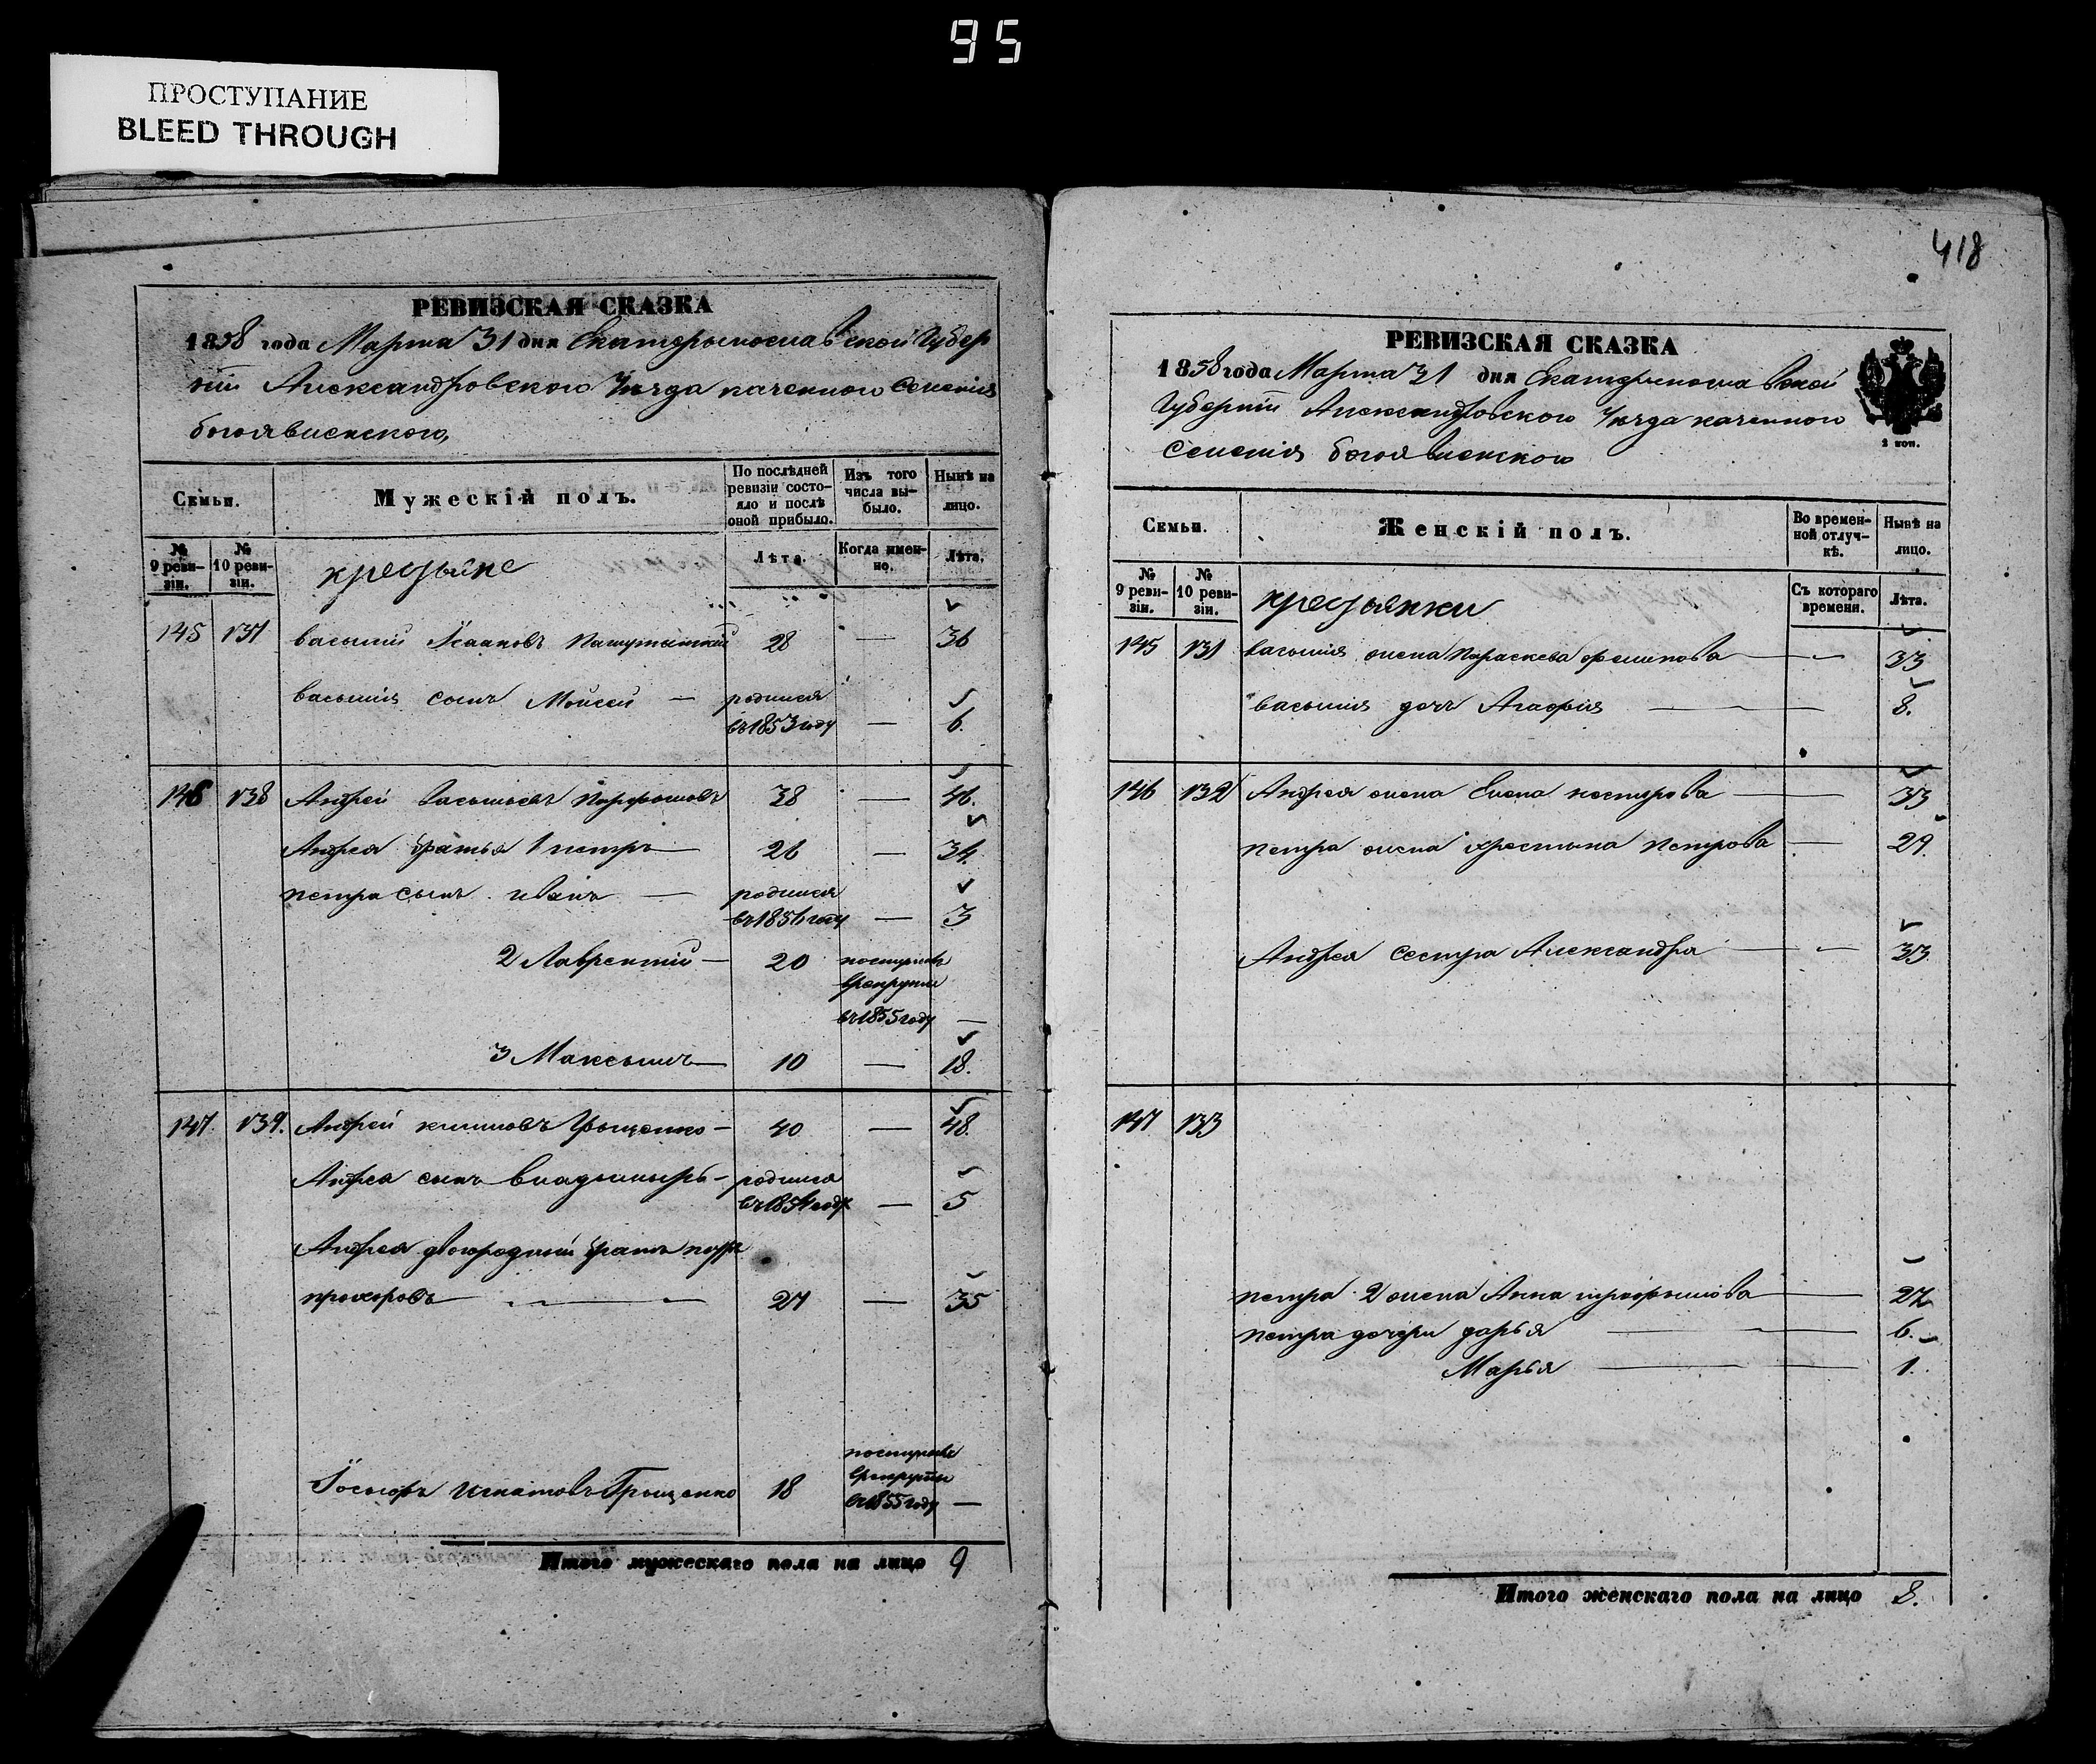 95
ПРОСТУПАНИЕ
BLEED THROUGH
РЕВИЗСКАЯ СКАЗКА
1858 года Марта 31 дня Екатерынославской Губер
нiи Александровского Уезда казенного Селенiя
богоявленского,
Семьи.
Мужескiй полъ.
По послѣдней ревизiи состояло и послѣ оной прибыло.
Изъ того числа выбыло.
Нынѣ на лицо.
№ 9 ревизiи.
№ 10 ревизiи.
крестьяне
Лѣта.
Когда именно.
Лѣта.
145 131 василiй Исааковъ 28 — 36
василiя сынъ Моисей — родился
въ 1853 году — 6.
146 138 Андрей васильевъ 38 — 46.
Андрея братья 1 петръ — 26 — 34.
петра сынъ иванъ — родился
въ 1856 году — 3
2 Лаврентiй — 20 поступилъ
врекруты
въ 1855 году —
3 Максымъ — 10 — 18.
147. 139. Андрей климовъ Грыщенко — 40 — 48.
Андрея сынъ владымыръ — родился
въ 1854 году — 5
Андрея двоюродный братъ петръ
прохоровъ — 27 — 35
Iосыфъ игнатовъ Грыщенко 18 поступилъ
врекруты
въ 1855 году —
Итого мужескаго пола на лицо 9
418
РЕВИЗСКАЯ СКАЗКА
1858 года Марта 31 дня Екатерыносла вской
Губернiи Александровского Уезда казенного
Селенiя богоявленского
2 коп.
Семьи.
Женскiй полъ.
Во временной отлучкѣ.
Нынѣ на лицо.
№ 9 ревизiи.
№ 10 ревизiи.
крестьянки
Съ котораго времени.
Лѣта.
145 131 василiя жена Параскева филипова — 33
василiя дочъ Агафiя — 8.
146 132 Андрея жена Елена — 33
петра жена христына Петрова — 29.
Андрея сестра Александра — 33
147 133
петра 2 жена Анна трофымова — 27
петра дочери дарья — 6.
Марья — 1.
Итого женскаго пола на лицо 8.